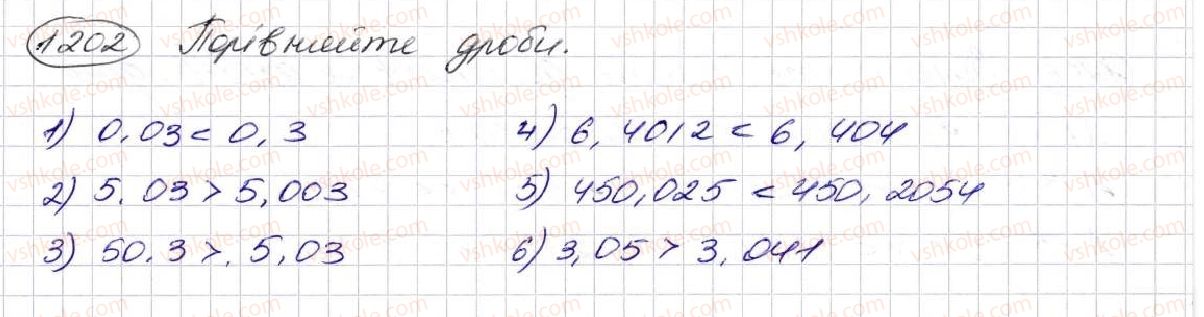 1202 Порівняйте дроби.
1) 0,03 < 0,3
2) 5.03 > 5,003
3) 50.3 >. 5,03
4) 6,4012 < 6,404
5) 450,025 < 450,2054
6) 3,05 > 3,041